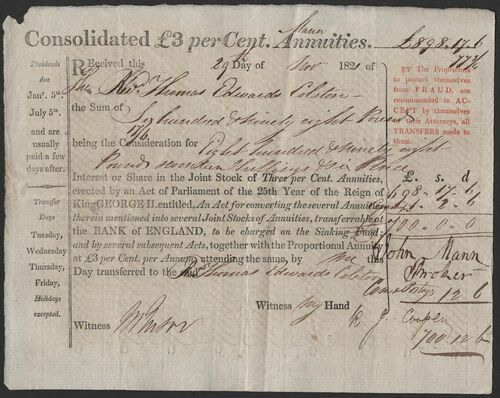 Mann
Consolidated £3 per Cent. Annuities.
£898.17.6
77⅞
Dividends
due
Jan. 5th
July 5th
and are
usually
paid a few
days after.
Transfer
Days
Tuesday,
Wednesday
Thursday,
Friday,
Holidays
excepted.
Received this 29 Day of Nov 1821 of
The Revd. Thomas Edwards Colston
the Sum of Six hundred & ninety eight Pounds
17/6
being the Consideration for Eight hundred & ninety eight
Pounds seventeen Shillings & six Pence
Interest or Share in the Joint Stock of Three per Cent. Annuities,
erected by an Act of Parliament of the 25th Year of the Reign of
King GEORGE II. entitled, An Act for converting the several Annuities
therein mentioned into several Joint Stocks of Annuities, transferrable at
the BANK of ENGLAND, to be charged on the Sinking Fund;
and by several subsequent Acts, together with the Proportional Annuity
at £3 per Cent. per Annum attending the same, by me this
Day transferred to the Revd. Thomas Edwards Colston
Witness my Hand
Witness
The Proprietors
to protect themselves
from FRAUD, are
recommended to AC-
CEPT by themselves
or their Attorneys, all
TRANSFERS made to
them.
£. s. d
698.17.6
2.6
700.0.0
John Mann
Broker
12.6
Cooper
700.12.6